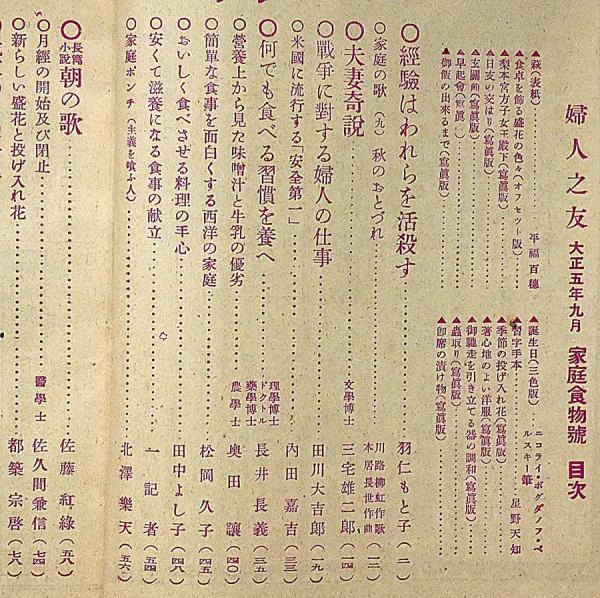 婦人之友 大正五年九月 家庭食物號 目次
▲萩(表紙)……平福百穗
▲食卓を飾る盛花の色々(オフセット版)
▲梨本宮方子女王殿下(寫眞版)
▲日支の交はり(寫眞版)
▲玄關前(寫眞版)
▲早起會(寫眞版)
▲御飯の出來るまで(寫眞版)
▲誕生日(三色版)……ニコライ・ボグダノフ・ベルスキー筆
▲習字手本……星野天知
▲季節の投げ入れ花(寫眞版)
▲着心地のよい洋服(寫眞版)
▲御馳走を引き立てる器の調和(寫眞版)
▲蟲取り(寫眞版)
▲卽席の漬け物(寫眞版)
〇經驗はわれらを活殺す……羽仁もと子(二)
〇家庭の歌(九) 秋のおとづれ……川路柳虹作歌 本居長世作曲(一二)
〇夫妻奇說……文學博士 三宅雄二郎(一四)
〇戰爭に對する婦人の仕事……田川大吉郎(一九)
〇米國に流行する「安全第一」……內田嘉吉(三三)
〇何でも食べる習慣を養へ……理學博士 ドクトル 藥學博士 長井長義(三五)
〇營養上から見た味噌汁と牛乳の優劣……農學士 奧田讓(四〇)
〇簡單な食事を面白くする西洋の家庭……松岡久子(四五)
〇おいしく食べさせる料理の手心……田中よし子(四八)
〇安くて滋養になる食事の献立……一記者(五四)
〇家庭ポンチ(主義を喰ふ人)……北澤樂天(五六)
〇長篇小說 朝の歌……佐藤紅綠(五八)
〇月經の開始及び閉止……醫學士 佐久間兼信(七四)
〇新らしい盛花と投げ入れ花……都築宗啓(七八)